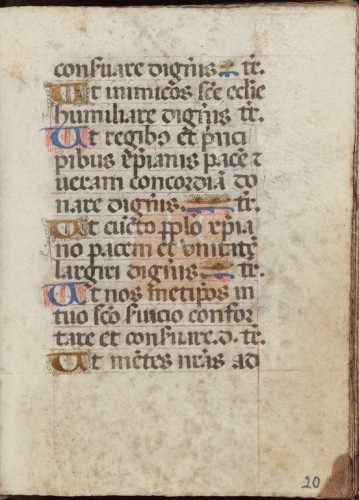 conſuare digñis tr̃.
Ut inimicos sc̃e ecl̃ie
humiliare digñis tr̃.
Ut regibꝰ et p̃nci
pibus xp̃ianis pacẽ ⁊
ueram concordiã do
nare digñis. tr̃.
Ut cũcto pp̃lo xp̃ia
no pacem et unitatẽ
largiri digñis tr̃.
Ut nos metip̃os in
tuo sc̃o ſuicio confor
tare et conſuare. d. tr̃.
Ut mẽtes nr̃as ad
20